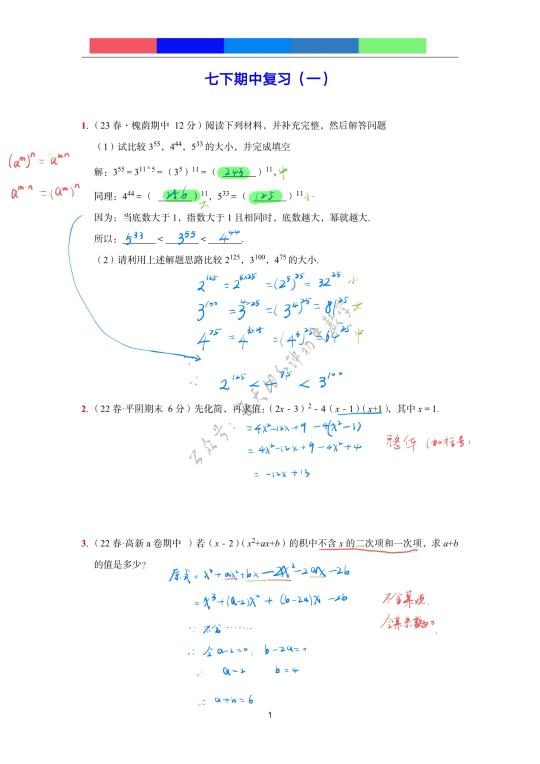 七下期中复习（一）
1.（23 春·槐荫期中 12 分）阅读下列材料，并补充完整，然后解答问题
（1）试比较 3⁵⁵，4⁴⁴，5³³ 的大小，并完成填空
(aᵐ)ⁿ = aᵐⁿ
解：3⁵⁵＝3¹¹ˣ⁵＝（3⁵）¹¹＝（ 243 ）¹¹，中
aᵐⁿ = (aᵐ)ⁿ
同理：4⁴⁴＝（ 256 ）¹¹，5³³＝（ 125 ）¹¹ 小
大
因为：当底数大于 1，指数大于 1 且相同时，底数越大，幂就越大.
所以：5³³ ＜ 3⁵⁵ ＜ 4⁴⁴.
（2）请利用上述解题思路比较 2¹²⁵，3¹⁰⁰，4⁷⁵ 的大小.
2¹²⁵ = 2⁵ˣ²⁵ = (2⁵)²⁵ = 32²⁵ 小
3¹⁰⁰ = 3⁴ˣ²⁵ = (3⁴)²⁵ = 81²⁵ 大
4⁷⁵ = 4³ˣ²⁵ = (4³)²⁵ = 64²⁵ 中
∴ 2¹²⁵ < 4⁷⁵ < 3¹⁰⁰
2.（22 春·平阴期末 6 分）先化简，再求值：（2x - 3）² - 4（x - 1）（x+1），其中 x = 1.
= 4x²-12x+9 -4(x²-1)
= 4x²-12x+9-4x²+4
= -12x+13
3.（22 春·高新 a 卷期中 ）若（x - 2）（x²+ax+b）的积中不含 x 的二次项和一次项，求 a+b
的值是多少?
原式 = x³+ax²+bx-2x²-2ax-2b
= x³+(a-2)x² + (b-2a)x -2b
不含某项
令某系数为0
∵ 不含……
∴ 令 a-2=0, b-2a=0
∴ a=2 b=4
∴ a+b=6
1